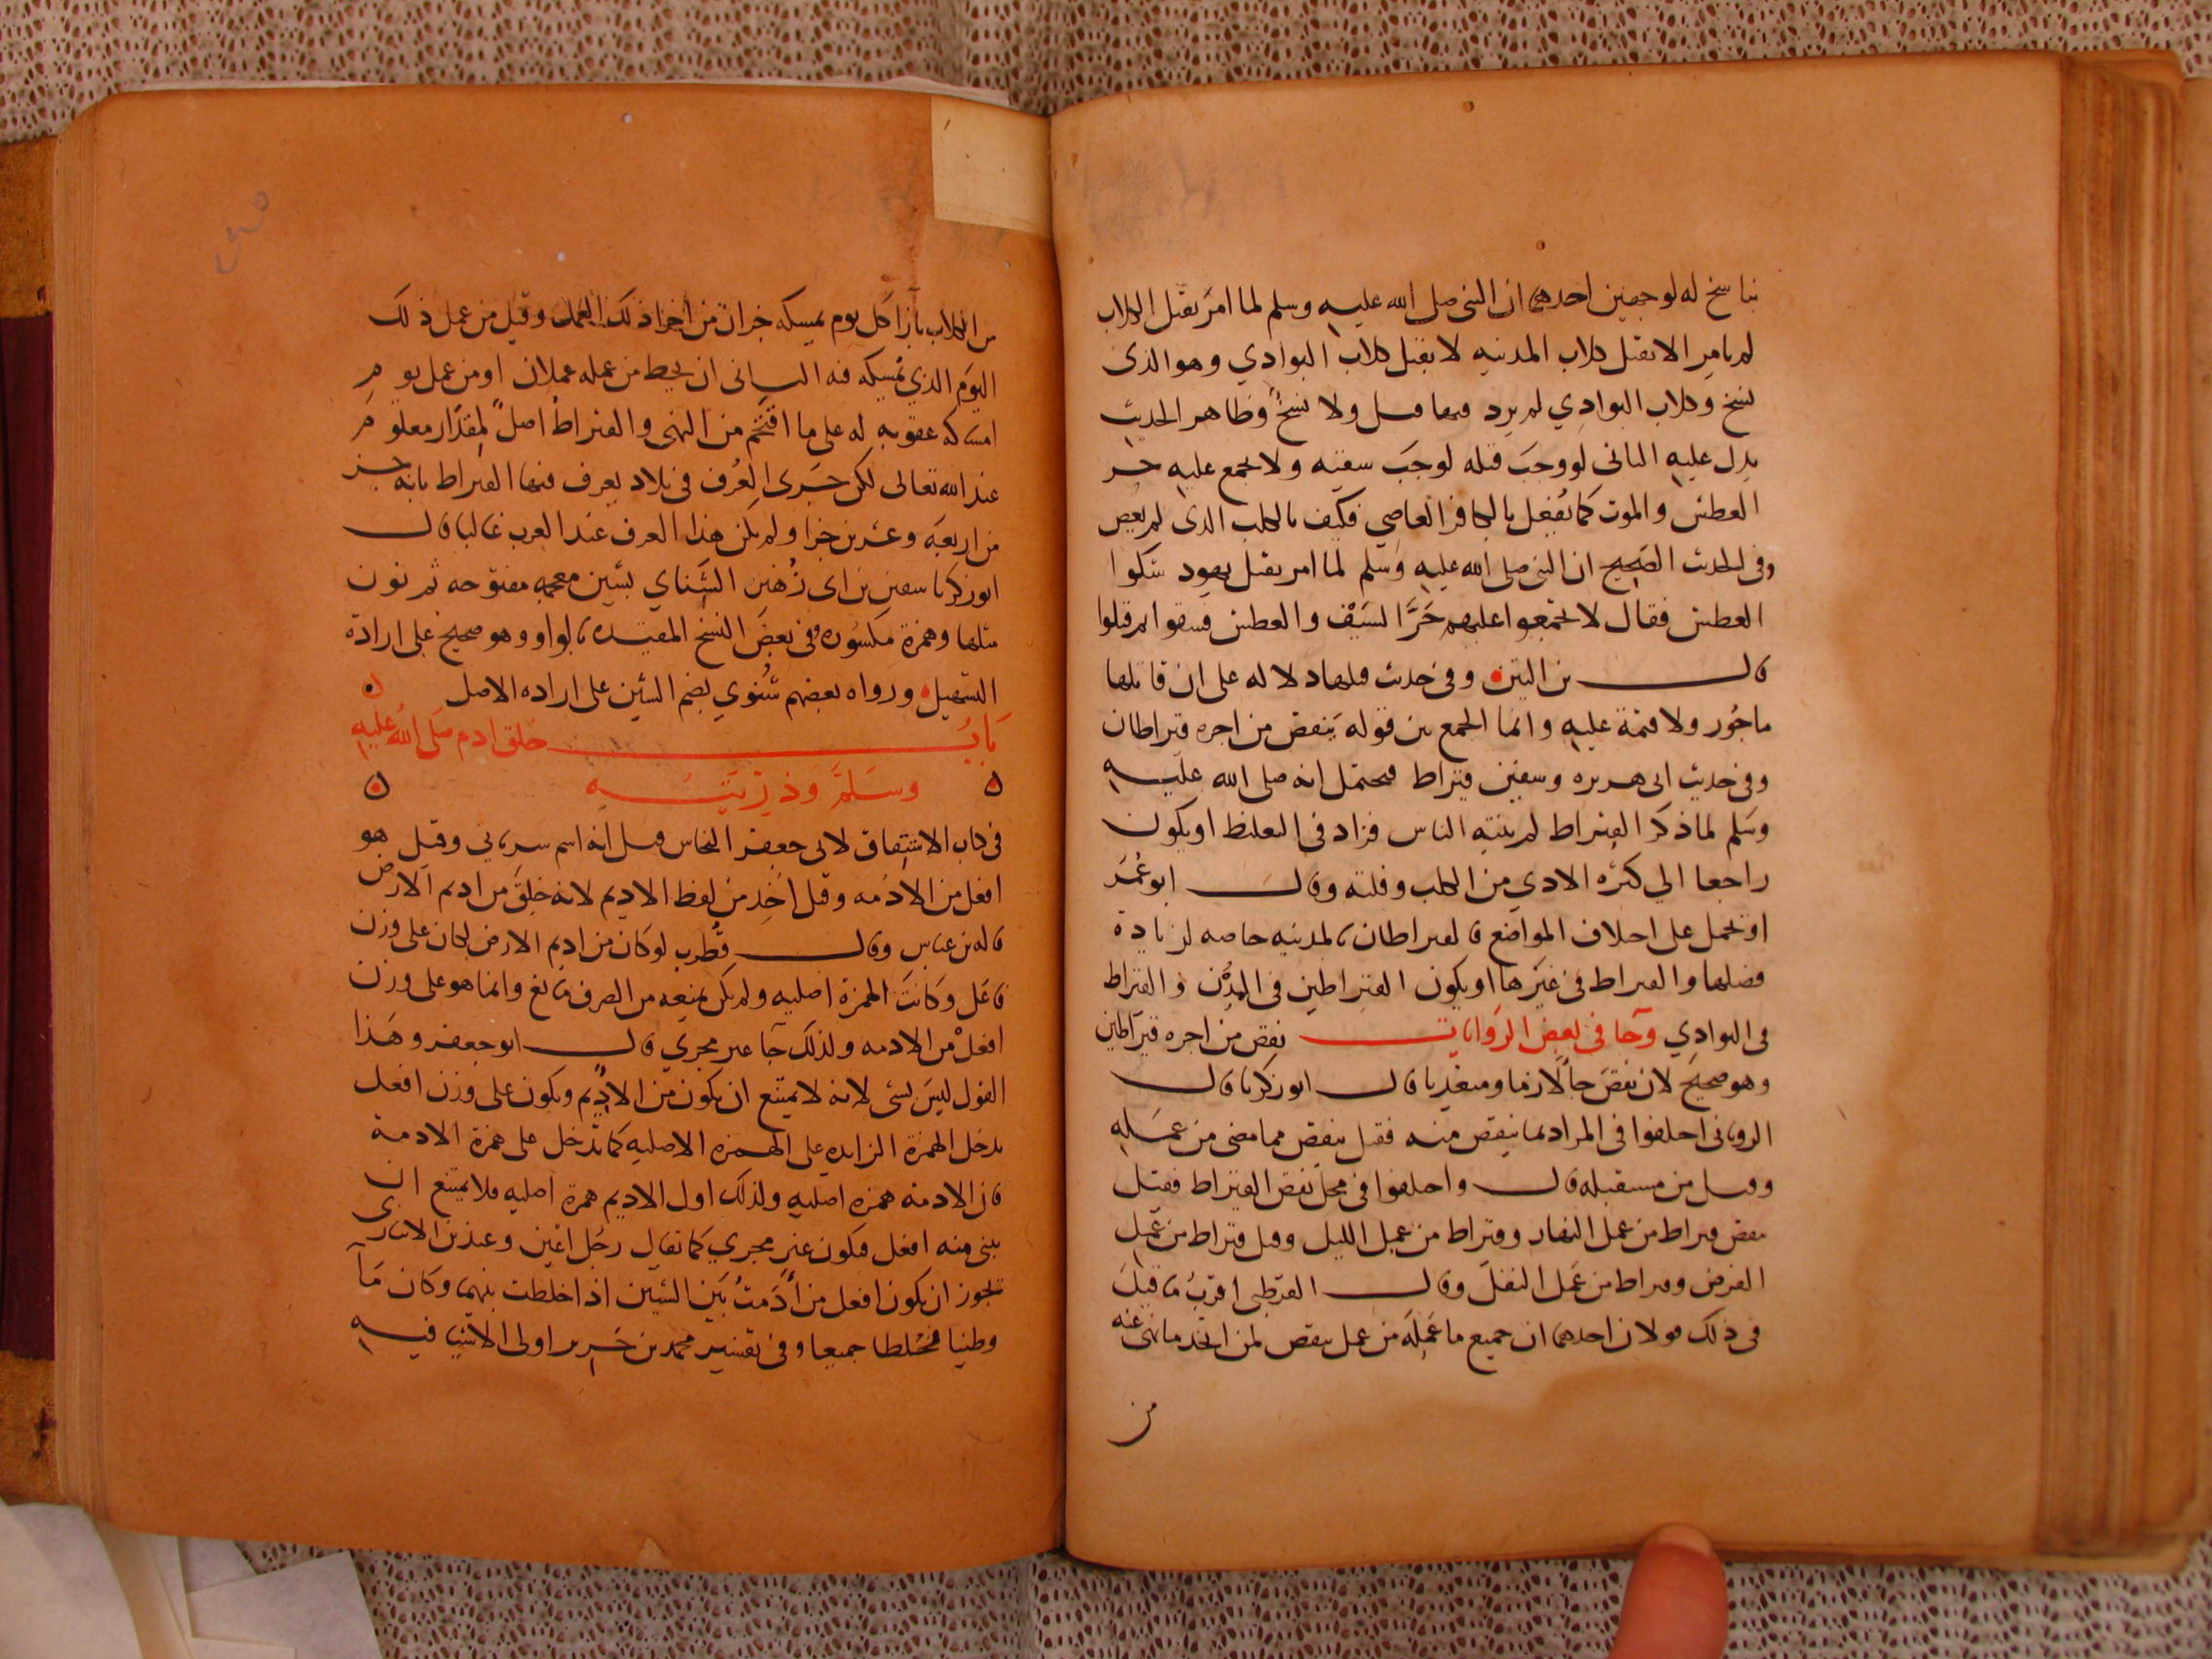 بناسخ له لوجهين احدهما ان النبى صلى الله عليه وسلم لما امر بقتل الكلاب
لم يامر الا بقتل كلاب المدينه لا بقتل كلاب البوادي وهو الذى
نسخ وكلاب البوادي لم يرد فيها قتل ولا نسخ وظاهر الحديث
يدل عليه الثانى لو وجب قتله لوجب سقيه ولا يجمع عليه حر
العطش والموت كما يفعل بالكافر العاصي فكيف بالكلب الذى لم يعص
وفى الحديث الصحيح ان النبى صلى الله عليه وسلم لما امر بقتل يهود شكوا
العطش فقال لا تجمعوا عليهم حر السيف والعطش فسقوا ثم قتلوا
قال بن التين وفى حديث قتلها دلاله على ان قاتلها
ماجور ولا قيمة عليه وانما الجمع بين قوله ينقص من اجره قيراطان
وفى حديث ابى هريره وسفين قيراط فيحتمل انه صلى الله عليه
وسلم لما ذكر القيراط لم ينته الناس فزاد فى التغليظ او يكون
راجعا الي كثره الاذي من الكلب وقلته وقال ابو عمر
او يحمل على اختلاف المواضع فالقيراطان بالمدينه خاصه لزيادة
فضلها والقيراط فى غيرها او يكون القيراطين فى المدن والقيراط
فى البوادي وجا فى بعض الروايات نقص من اجره قيراطين
وهو صحيح لان نقص جا لازما ومتعديا قال ابو زكريا قال
الرويانى اختلفوا فى المراد بما ينقص منه فقيل ينقص مما مضى من عمله
وقيل من مستقبله قال واختلفوا فى محل نقص القيراط فقيل
ينقص قيراط من عمل النهار وقيراط من عمل الليل وقيل قيراط من عمل
الفرض وقيراط من عمل النفل وقال القرطبى اقرب ما قيل
فى ذلك قولان احدهما ان جميع ما عمله من عمل ينقص لمن اتخذ ما نهى عنه
من
من الكلاب بازا كل يوم يمسكه جزان من اجزا ذلك العمل وقيل من عمل ذلك
اليوم الذي يمسكه فيه الثانى ان يحط من عمله عملان او من عمل يوم
امساكه عقوبه له على ما اقتحم من النهى والقيراط اصل لمقدار معلوم
عند الله تعالى لكن جرى العرف فى بلاد يعرف فيها القيراط بانه جز
من اربعة وعشرين جزا ولم يكن هذا العرف عند العرب غالبا قال
ابو زكريا سفين بن ابى زهير الشنائي بشين معجمه مفتوحه ثم نون
مثلها وهمزة مكسوره وفى بعض النسخ المعتمده بالواو وهو صحيح على ارادة
التسهيل ورواه بعضهم شنوي بضم الشين على اراده الاصل
باب خلق ادم صلى الله عليه
وسلم وذريته
فى كتاب الاشتقاق لابى جعفر النحاس قيل انه اسم سريانى وقيل هو
افعل من الادمه وقيل اخذ من لفظ الاديم لانه خلق من اديم الارض
قاله بن عباس وقال قطرب لو كان من اديم الارض لكان على وزن
فاعل وكانت الهمزة اصليه ولم يكن يمنعه من الصرف مانع وانما هو على وزن
افعل من الادمه ولذلك جا غير مجري قال ابو جعفر وهذا
القول ليس بشى لانه لا يمتنع ان يكون من الاديم ويكون على وزن افعل
يدخل الهمزة الزايده على الهمزه الاصليه كما تدخل على همزة الادمة
فان الادمه همزه اصليه ولذلك اول الاديم همزة اصليه فلا يمتنع ان
يبنى منه افعل فيكون غير مجري كما تقال رجل اعين وعند بن الانبارى
تجوز ان يكون افعل من ادمت بين الشيين اذا خلطت بينهما وكان ما
وطينا فخلطا جميعا وفى تفسير محمد بن جرير اولى الاشيا فيه